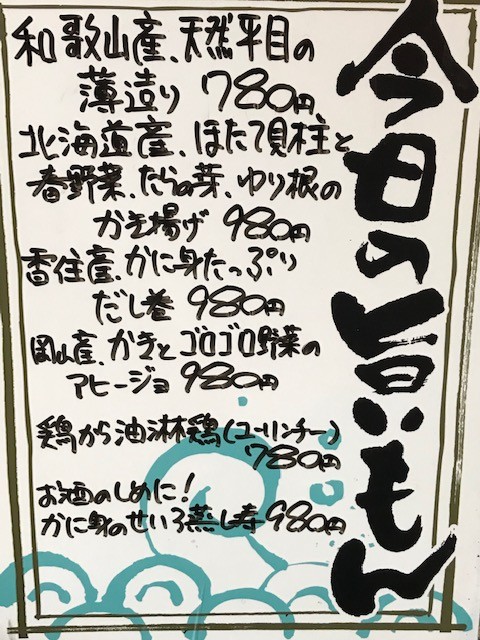 今日の旨いもん
和歌山産、天然平目の
薄造り 780円、
北海道産、ほたて貝柱と
春野菜、たらの芽、ゆり根の
かき揚げ 980円
香住産、かに身たっぷり
だし巻 980円
岡山産、かきとゴロゴロ野菜の
アヒージョ 980円
鶏から油淋鶏(ユーリンチー)
780円
お酒のしめに!
かに身のせいろ蒸し寿 980円